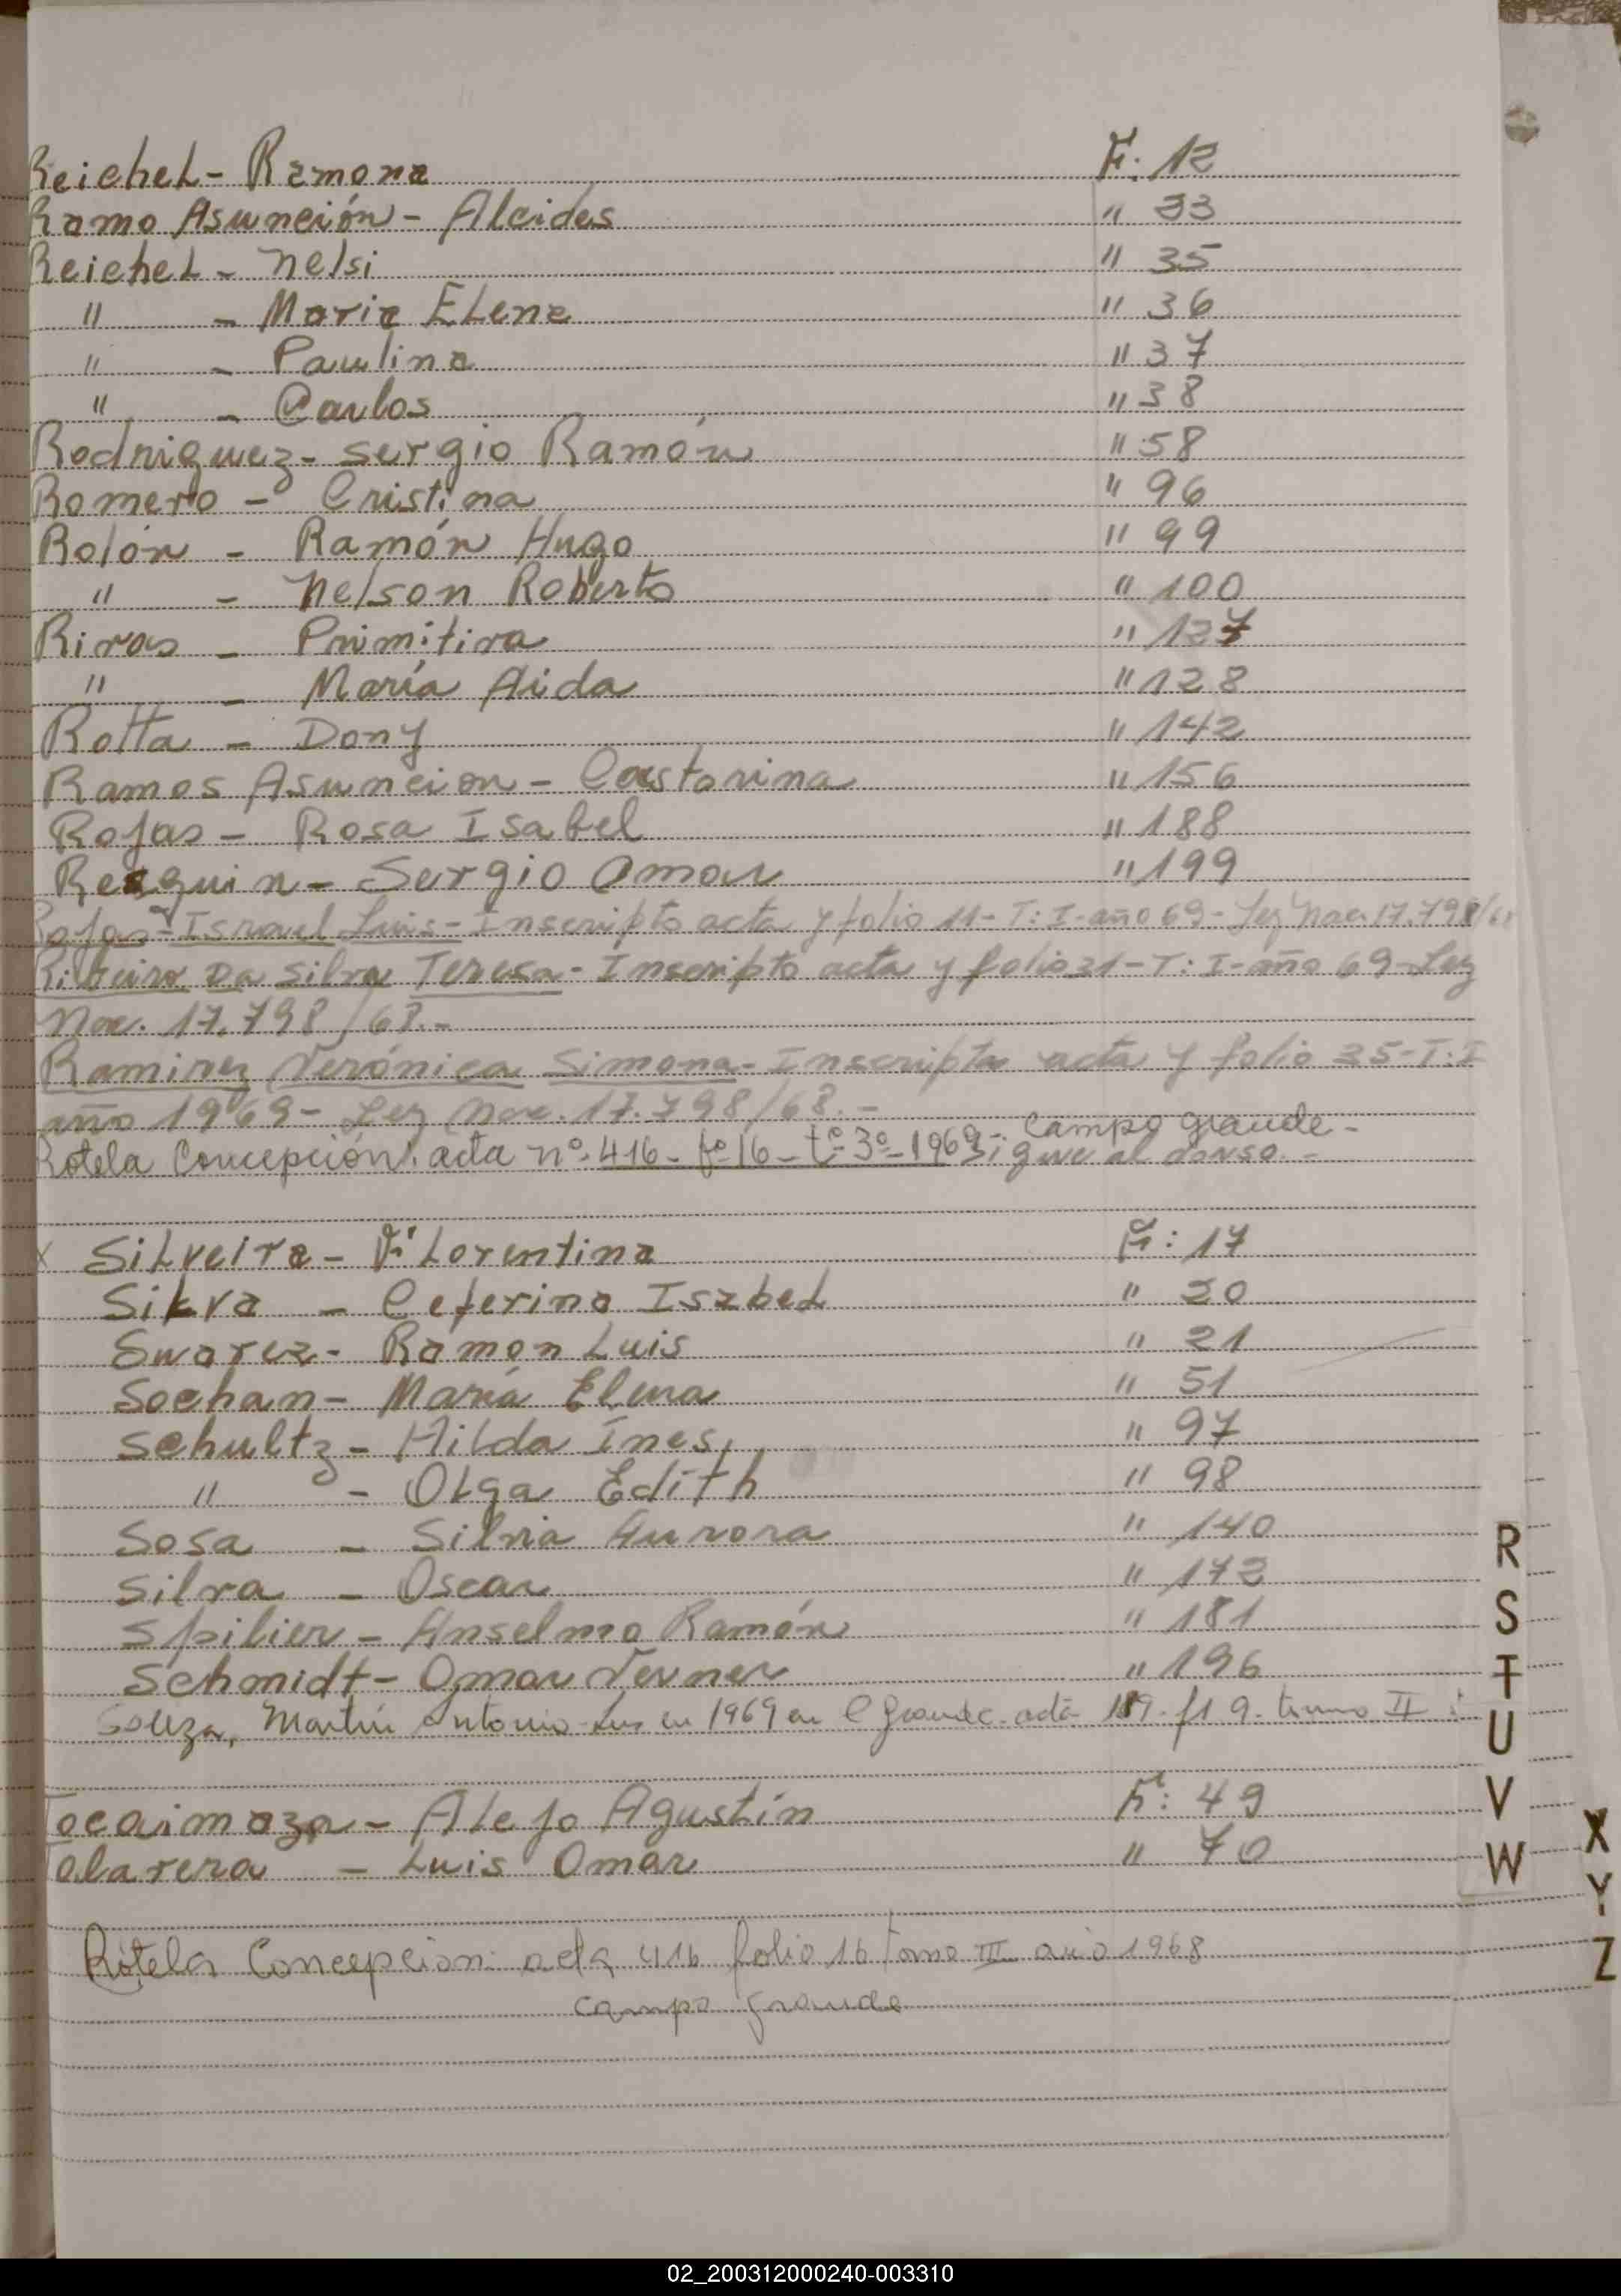 Reichel - Ramona F: 12
Ramo Asunción - Alcides " 33
Reichel - Nelsi " 35
" - Maria Elena " 36
" - Paulina " 37
" - Carlos " 38
Rodriguez - Sergio Ramón " 58
Romero - Cristina " 96
Rolón - Ramón Hugo " 99
" - Nelson Roberto " 100
Rivas - Primitiva " 127
" - María Aida " 128
Rotta - Dony " 142
Ramos Asuncion - Castorina " 156
Rojas - Rosa Isabel " 188
Resquin - Sergio Omar " 199
Rojas - Israel Luis - Inscripto acta y folio 11 - T: I - año 69 - Ley Nac. 17.798/68
Ribeiro Da Silva Teresa - Inscripto acta y folio 21 - T: I - año 69 - Ley
Nac. 17.798/68.-
Ramirez Verónica Simona - Inscripta acta y folio 25 - T: I
año 1969 - Ley Nac. 17.798/68.-
campo grande -
Rotela Concepción: acta nº 416 - fº 16 - tº 3º - 1969 - sigue al dorso.-
X Silveira - Florentina F: 17
Silva - Ceferino Isabel " 20
Suarez - Ramon Luis " 21
Sochan - María Elena " 51
Schultz - Hilda Ines, " 97
" - Olga Edith " 98
Sosa - Silvia Aurora " 140
Silva - Oscar " 172
Spilier - Anselmo Ramón " 181
Schmidt - Omar Verner " 196
Souza, Martín Antonio - en 1969 en C grande - acta 189 - fl 9. tomo II
Tocaimaza - Alejo Agustín F: 49
Talavera - Luis Omar " 70
Rotela Concepcion: acta 416 folio 16 tomo III año 1968
campo grande
R
S
T
U
V
W
X
Y
Z
02_200312000240-003310